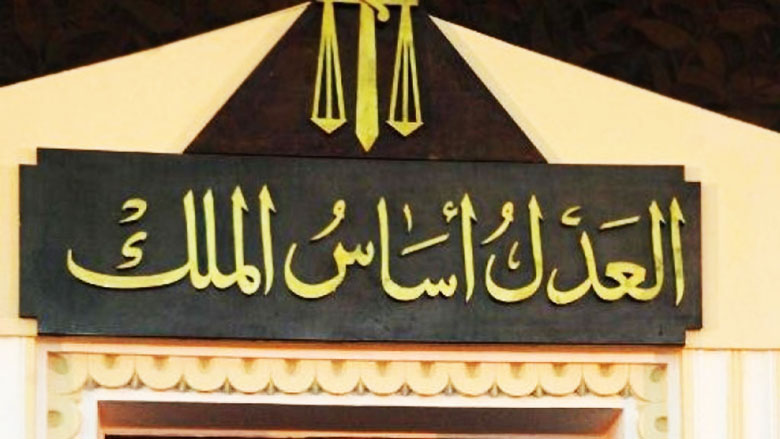 العَدَلُ أسَاسُ الملكْ